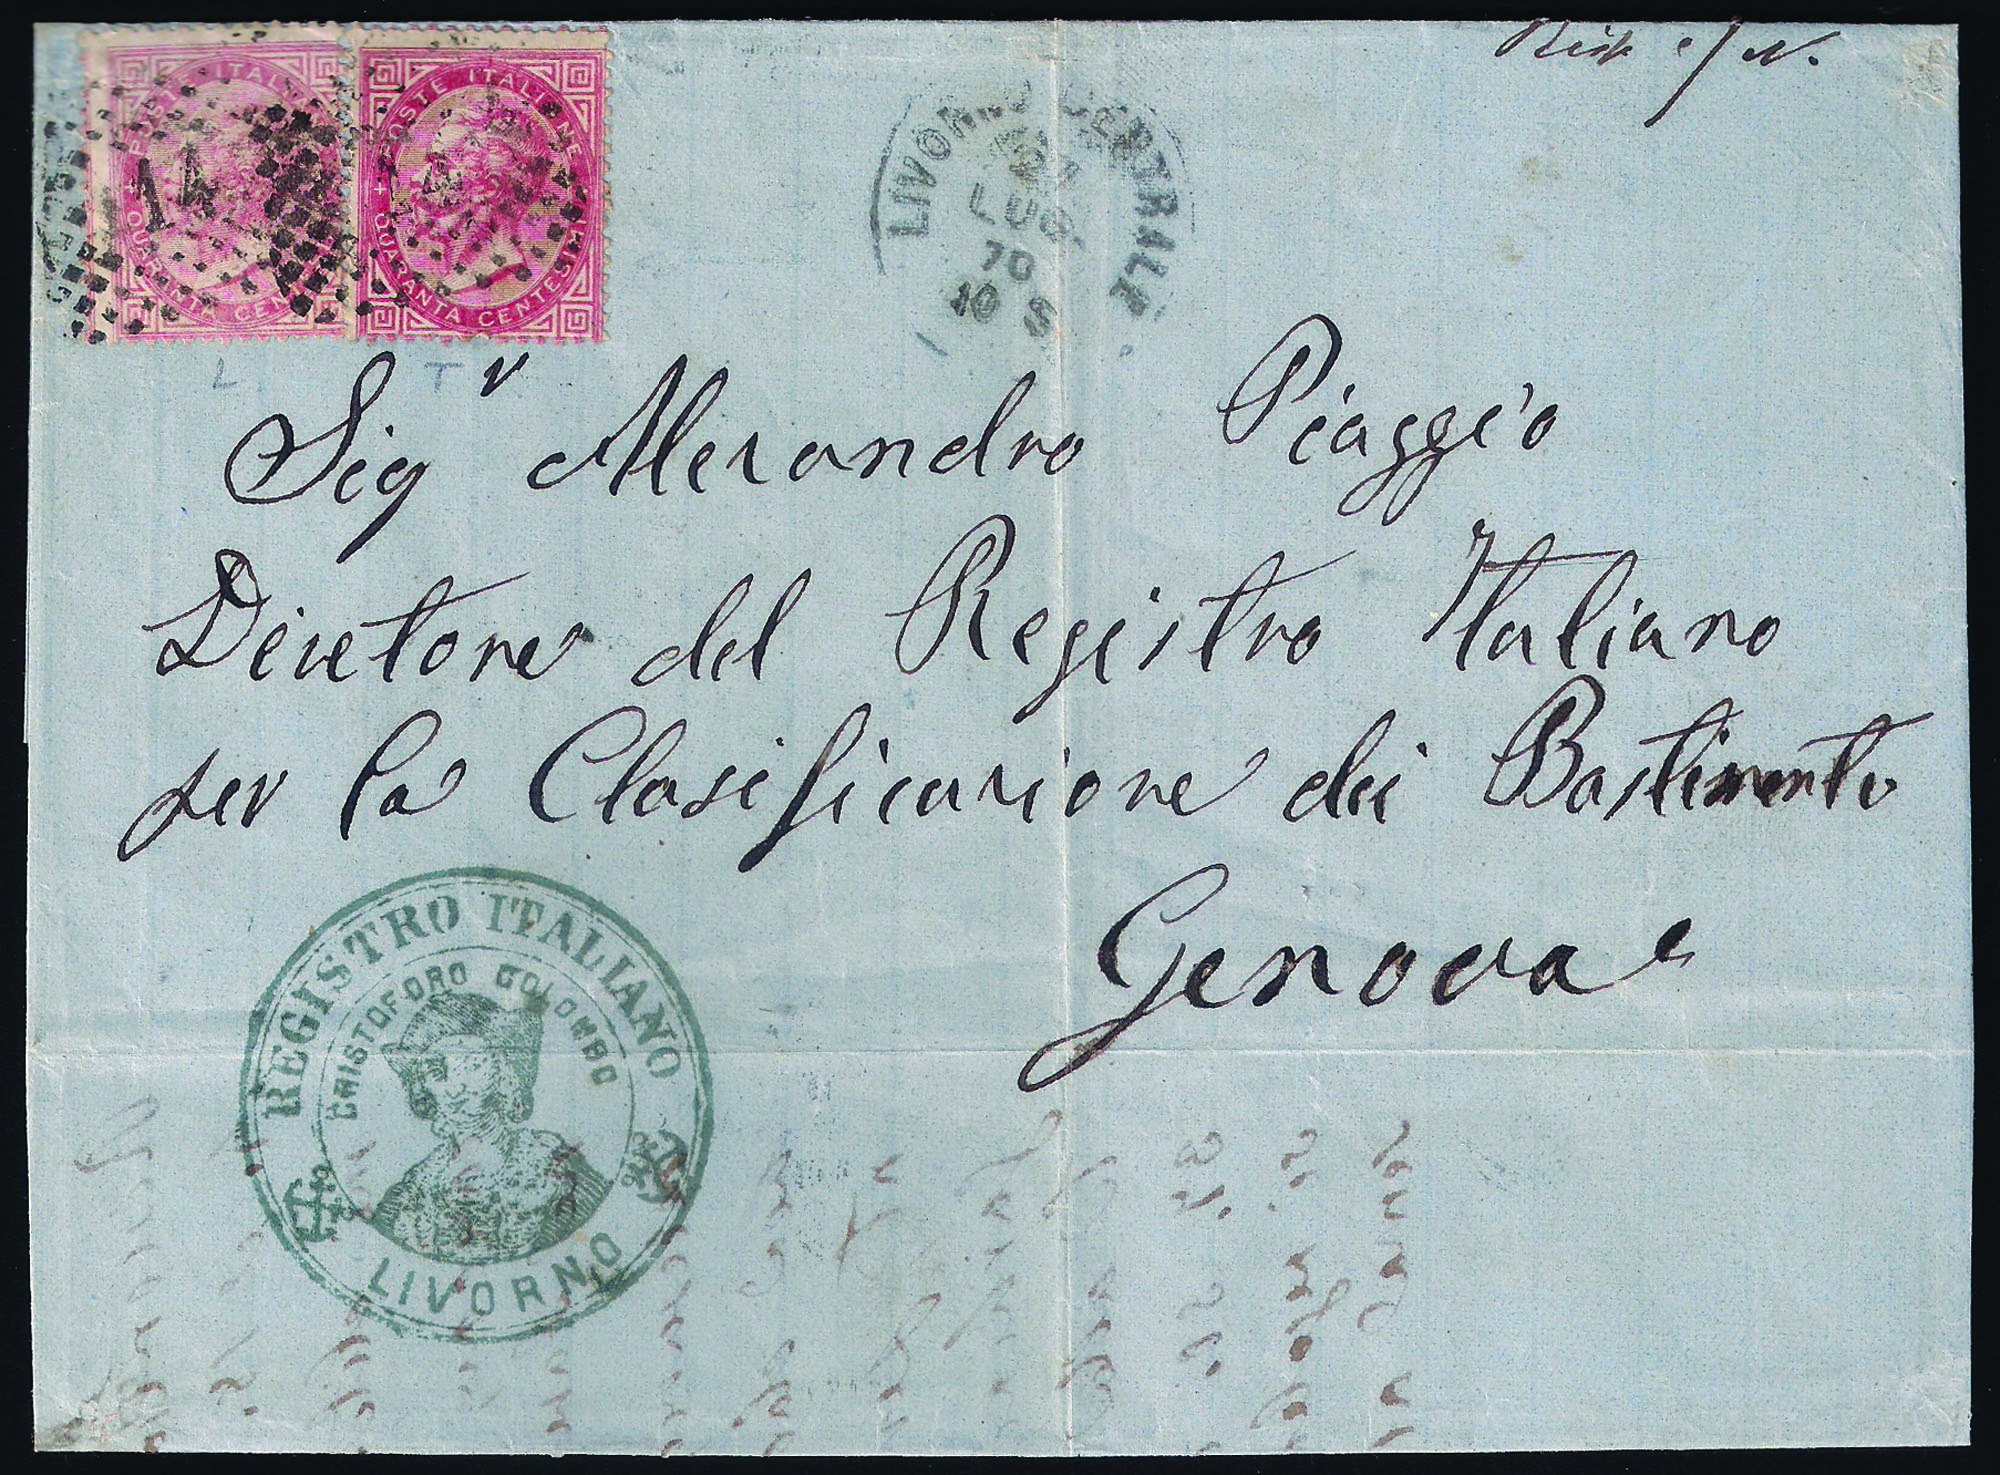 POSTE ITALIANE
QUARANTA CENTESIMI
14
POSTE ITALIANE
QUARANTA CENTESIMI
LIVORNO CENTRALE
LUG.
70
10 S
L
T
Sigr Alesandro Piaggio
Diretore del Registro Italiano
per la Clasificazione dei Bastimenti
Genova
REGISTRO ITALIANO
CRISTOFORO COLOMBO
LIVORNO